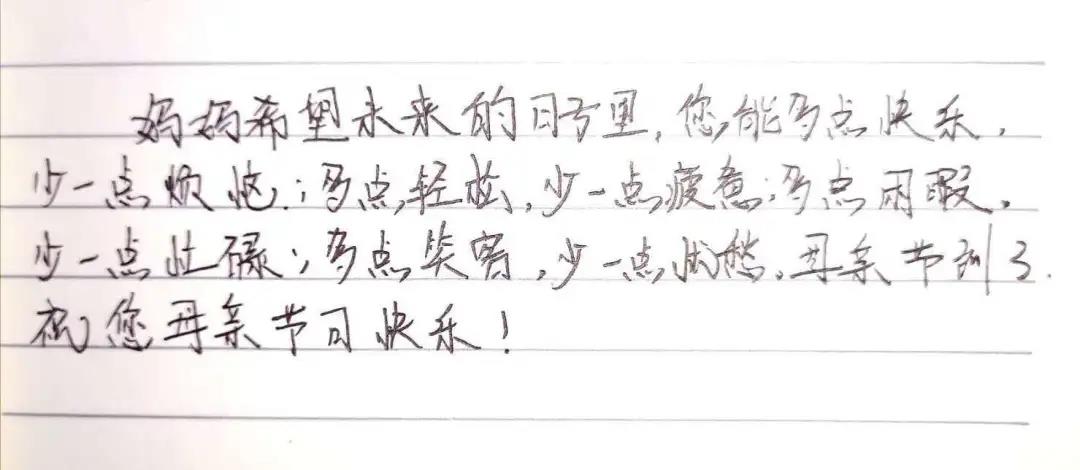 妈妈希望未来的日子里,您能多点快乐,
少一点烦恼;多点轻松,少一点疲惫;多点闲暇,
少一点忙碌;多点笑容,少一点忧愁,母亲节到了.
祝您母亲节日快乐!